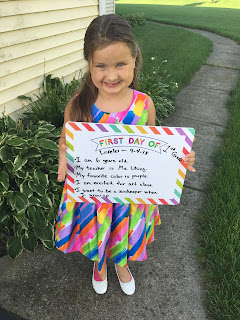 FIRST DAY OF
1st Grade
I am 6 years old.
My teacher is Ms. 
My favorite color is purple.
I am excited for art class.
I want to be a zookeeper when